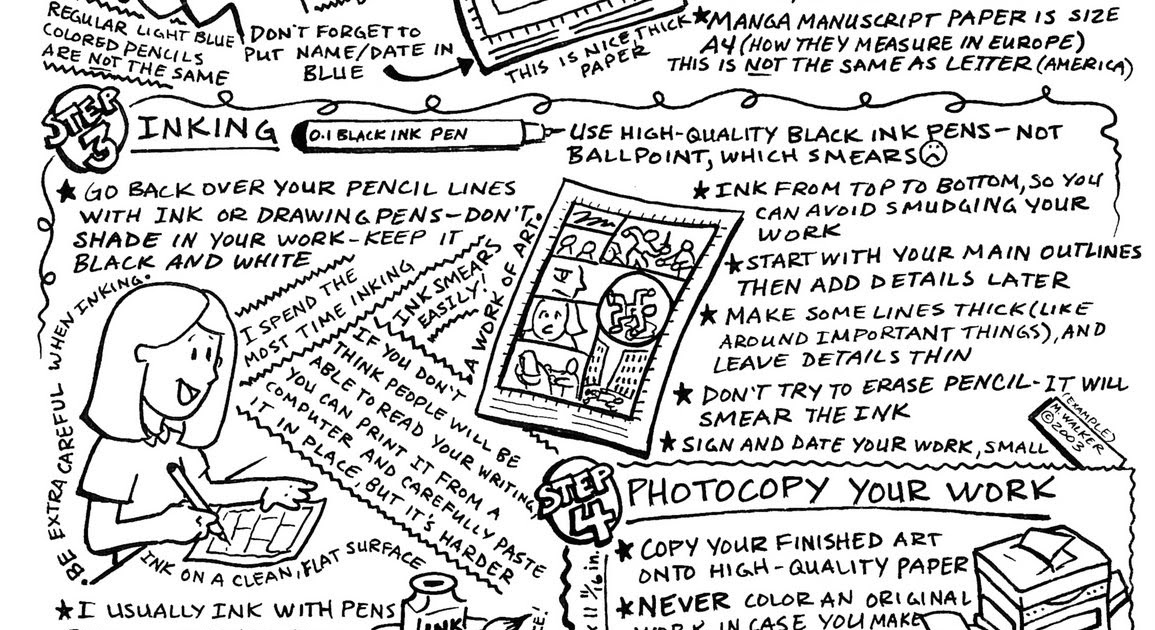 REGULAR LIGHT BLUE
COLORED PENCILS
ARE NOT THE SAME
DON'T FORGET TO
PUT NAME/DATE IN
BLUE
THIS IS NICE, THICK
PAPER
★MANGA MANUSCRIPT PAPER IS SIZE
A4 (HOW THEY MEASURE IN EUROPE)
THIS IS NOT THE SAME AS LETTER (AMERICA)
STEP
3
INKING
0.1 BLACK INK PEN
USE HIGH-QUALITY BLACK INK PENS-NOT
BALLPOINT, WHICH SMEARS
★ GO BACK OVER YOUR PENCIL LINES
WITH INK OR DRAWING PENS-DON'T
SHADE IN YOUR WORK-KEEP IT
BLACK AND WHITE
•BE EXTRA CAREFUL WHEN INKING•
I SPEND THE
MOST TIME INKING
INK SMEARS
EASILY!
A WORK OF ART•
IF YOU DON'T
THINK PEOPLE WILL BE
ABLE TO READ YOUR WRITING,
YOU CAN PRINT IT FROM A
COMPUTER AND CAREFULLY PASTE
IT IN PLACE, BUT IT'S HARDER
INK ON A CLEAN, FLAT SURFACE
★I USUALLY INK WITH PENS
INK
★INK FROM TOP TO BOTTOM, SO YOU
CAN AVOID SMUDGING YOUR
WORK
★START WITH YOUR MAIN OUTLINES
THEN ADD DETAILS LATER
★ MAKE SOME LINES THICK (LIKE
AROUND IMPORTANT THINGS), AND
LEAVE DETAILS THIN
★ DON'T TRY TO ERASE PENCIL-IT WILL
SMEAR THE INK
★SIGN AND DATE YOUR WORK, SMALL
(EXAMPLE)
M. WALKER
©2003
STEP
4
PHOTOCOPY YOUR WORK
★ COPY YOUR FINISHED ART
ONTO HIGH-QUALITY PAPER
★NEVER COLOR AN ORIGINAL
WORK IN CASE YOU MAKE